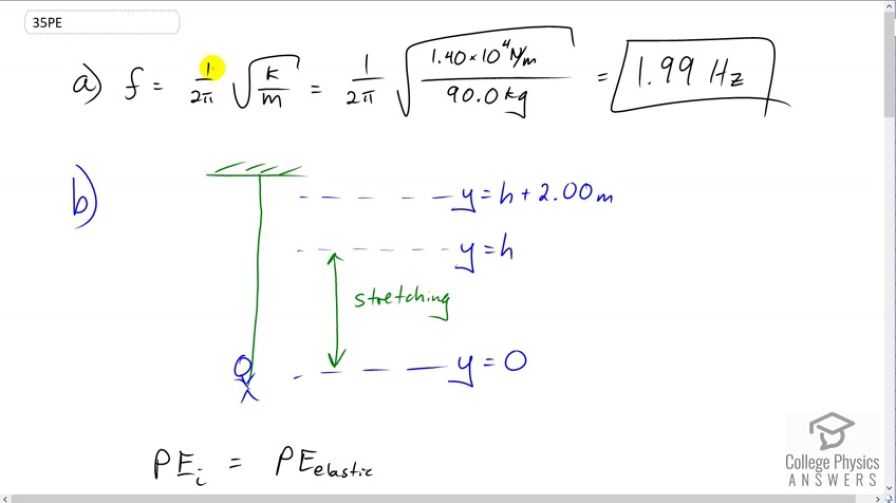 35PE
a) f = 1/2π √k/m = 1/2π √1.40×10⁴ N/m / 90.0 kg = 1.99 Hz
b)
y = h + 2.00 m
y = h
stretching
y = 0
PEᵢ = PEelastic
College Physics
ANSWERS